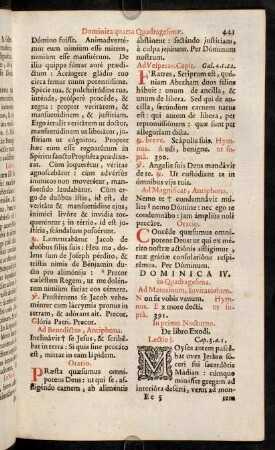 Dominica quarta Quadragesimæ. 441
Dómino fuisse. Animadverté-
runt eum nimium esse mitem,
nimium esse mansuétum. De
illo quippe fúerat antè prædí-
ctum: Accíngere gládio tuo
circa femur tuum potentíssime.
Spécie tua, & pulchritúdine tua,
inténde, próspere procéde, &
regna: propter veritátem, &
mansuetúdinem, & justítiam.
veritátem, ut doctor:
eum ut liberátor,
justítiam ut cógnitor. Propter
hæc eum esse regnatúrum in
Spíritu sancto Prophéta prædíxe-
rat. Cùm loquerétur, véritas
agnoscebátur: cùm advérsùs
inimícos non moverétur, man-
suetúdo laudabátur. Cùm er-
go de duóbus istis, id est, de
veritáte & mansuetúdine ejus,
inimíci livóre & invídia tor-
queréntur; in tértio, id est ju-
stítia, scándalum posuérunt.
℟. Lamentabátur Jacob de
duóbus fíliis suis: Heu me, do-
lens sum de Joseph pérdito, &
tristis nimis de Bénjamin du-
cto pro alimóniis: * Precor
cæléstem Regem, ut me dolén-
tem nímium fáciat eos cérnere.
℣. Prostérnens se Jacob vehe-
ménter cum lácrymis pronus in
terram, & adórans ait. Precor.
Glória Patri. Precor.
Ad Benedictus, Antiphona.
Inclinávit † se Jesus, & scribé-
bat in terra: Si quis sine peccáto
est, mittat in eam lápidem.
Oratio.
PRæsta quǽsumus omní-
potens Deus: ut qui se, af-
fligéndo carnem, ab aliméntis
ábstinent: sectándo justítiam,
à culpa jejúnent. Per Dóminum
nostrum.
Ad Vesperas, Capit. Gal. 4. c. 22.
FRatres, Scriptum est, quó-
niam Abraham duos fílios
hábuit: unum de ancílla, &
unum de líbera. Sed qui de an-
cílla, secúndùm carnem natus
est: qui autem de líbera, per
repromissiónem: quæ sunt per
allegoríam dicta.
℟. breve. Scápulis suis. Hymnus.
Audi, benígne. ut supra
390.
℣. Angelis suis Deus mandávit
de te. ℟. Ut custódiant te in
ómnibus viis tuis.
Ad Magnificat, Antiphona.
Nemo te † condemnávit mú-
lier? nemo Dómine: nec ego te
condemnábo: jam ámplius noli
peccáre.
Oratio.
COncéde quǽsumus omní-
potens Deus: ut qui ex mé-
rito nostræ actiónis afflígimur,
tuæ grátiæ consolatióne respi-
rémus. Per Dóminum.
DOMINICA IV.
in Quadragesima.
Ad Matutinum, Invitatorium.
NOn sit vobis vanum. Hym-
nus. Ex more docti. ut
391.
In primo Nocturno.
De libro Exodi.
Lectio j. Cap. 3. a. 1.
MOyses autem pascé-
bat oves Jethro só-
ceri sui sacerdótis
Mádian: cumque
minásset gregem ad
interióra desérti, venit ad mon-
Ee 5 tem